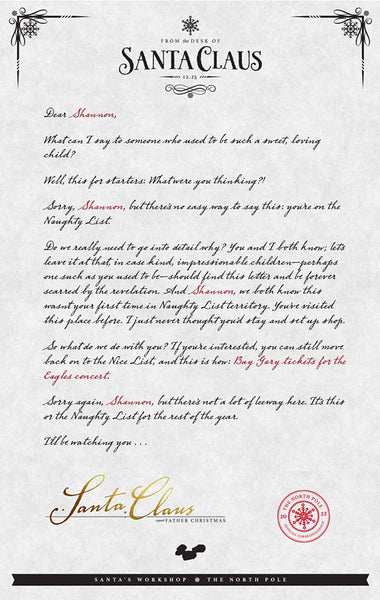 FROM the DESK OF
SANTA CLAUS
12.25
Dear Shannon,
What can I say to someone who used to be such a sweet, loving
child?
Well, this for starters: What were you thinking?!
Sorry, Shannon, but there's no easy way to say this: you're on the
Naughty List.
Do we really need to go into detail why? You and I both know; let's
leave it at that, in case kind, impressionable children—perhaps
one such as you used to be—should find this letter and be forever
scarred by the revelation. And Shannon, we both know this
wasn't your first time in Naughty List territory. You've visited
this place before. I just never thought you'd stay and set up shop.
So what do we do with you? If you're interested, you can still move
back on to the Nice List, and this is how: Buy Gary tickets for the
Eagles concert.
Sorry again, Shannon, but there's not a lot of leeway here. It's this
or the Naughty List for the rest of the year.
I'll be watching you . . .
Santa Claus
signed FATHER CHRISTMAS
THE NORTH POLE
20 22
OFFICIAL CORRESPONDENCE
SANTA'S WORKSHOP THE NORTH POLE